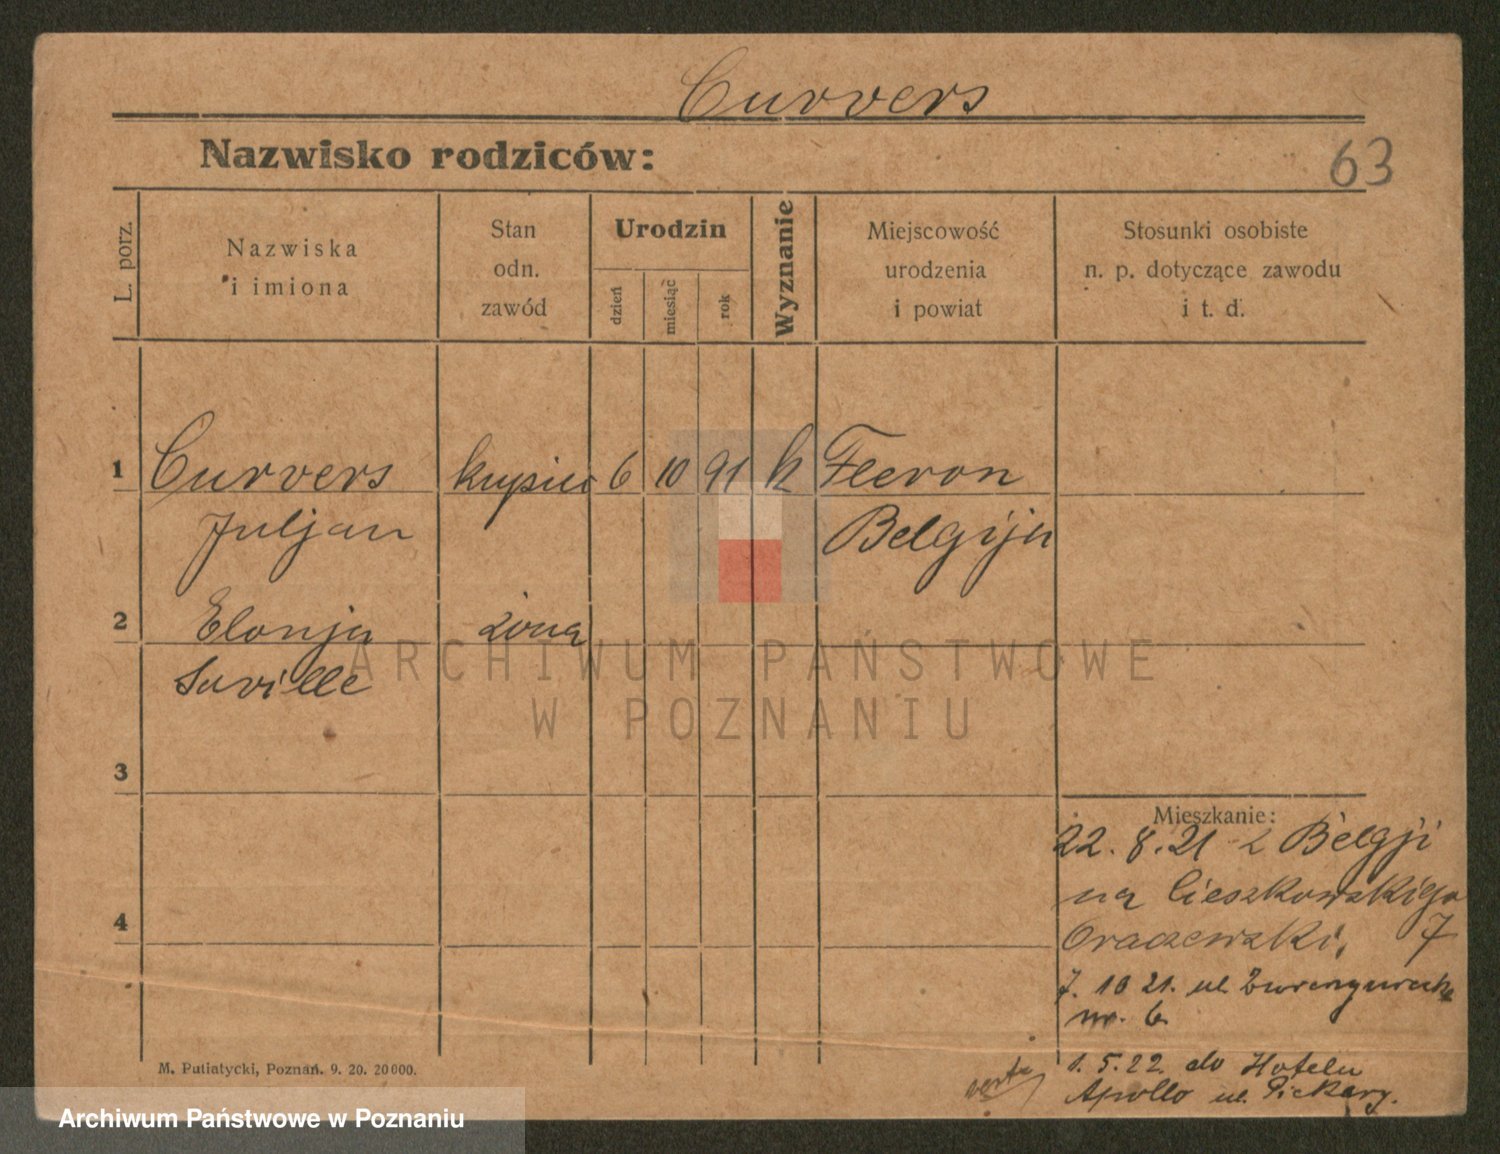 Curvers
Nazwisko rodziców:
63
L. porz.
Nazwiska
i imiona
Stan
odn.
zawód
Urodzin
dzień
miesiąc
rok
Wyznanie
Miejscowość
urodzenia
i powiat
Stosunki osobiste
n. p. dotyczące zawodu
i t. d.
1 Curvers kupiec 6 10 91 k Fleron
Juljan Belgija
2 Elonja żona
Saville
3
Mieszkanie:
22. 8. 21 z Belgji
na Cieszkowskiego
7
4
7. 10 21. ul.
nr. 6
1. 5. 22 do Hotelu
Apollo ul. Piekary.
verte
M. Putiatycki, Poznań. 9. 20. 20000.
ARCHIWUM PAŃSTWOWE
W POZNANIU
Archiwum Państwowe w Poznaniu